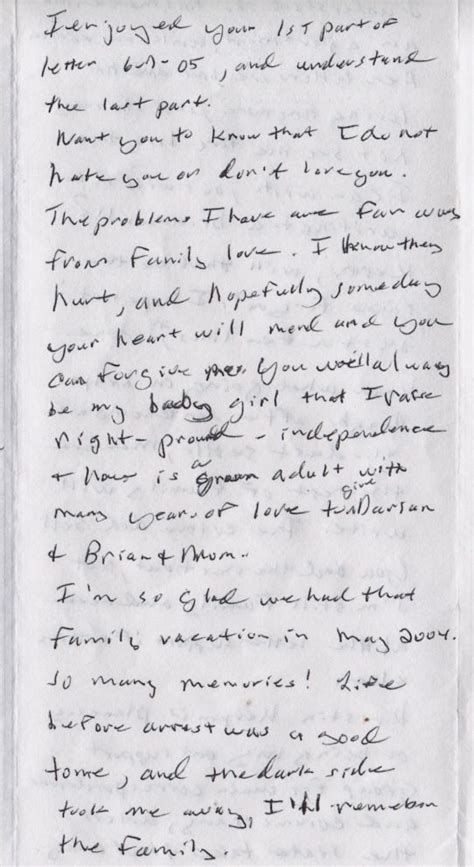 I enjoyed your 1st part of
letter 6-9-05, and understand
the last part.
Want you to know that I do not
hate you or don't love you.
The problems I have are far way
from Family love. I know they
hurt, and hopefully someday
your heart will mend and you
can forgive me. You will alway
be my baby girl that I rase
right - proud - independence
& now is a grown adult with
many years of love to give Darian
& Brian & Mom.
I'm so glad we had that
Family vacation in may 2004.
So many memories! Life
before arrest was a good
tome, and the dark side
took me away, I'll remember
the Family.